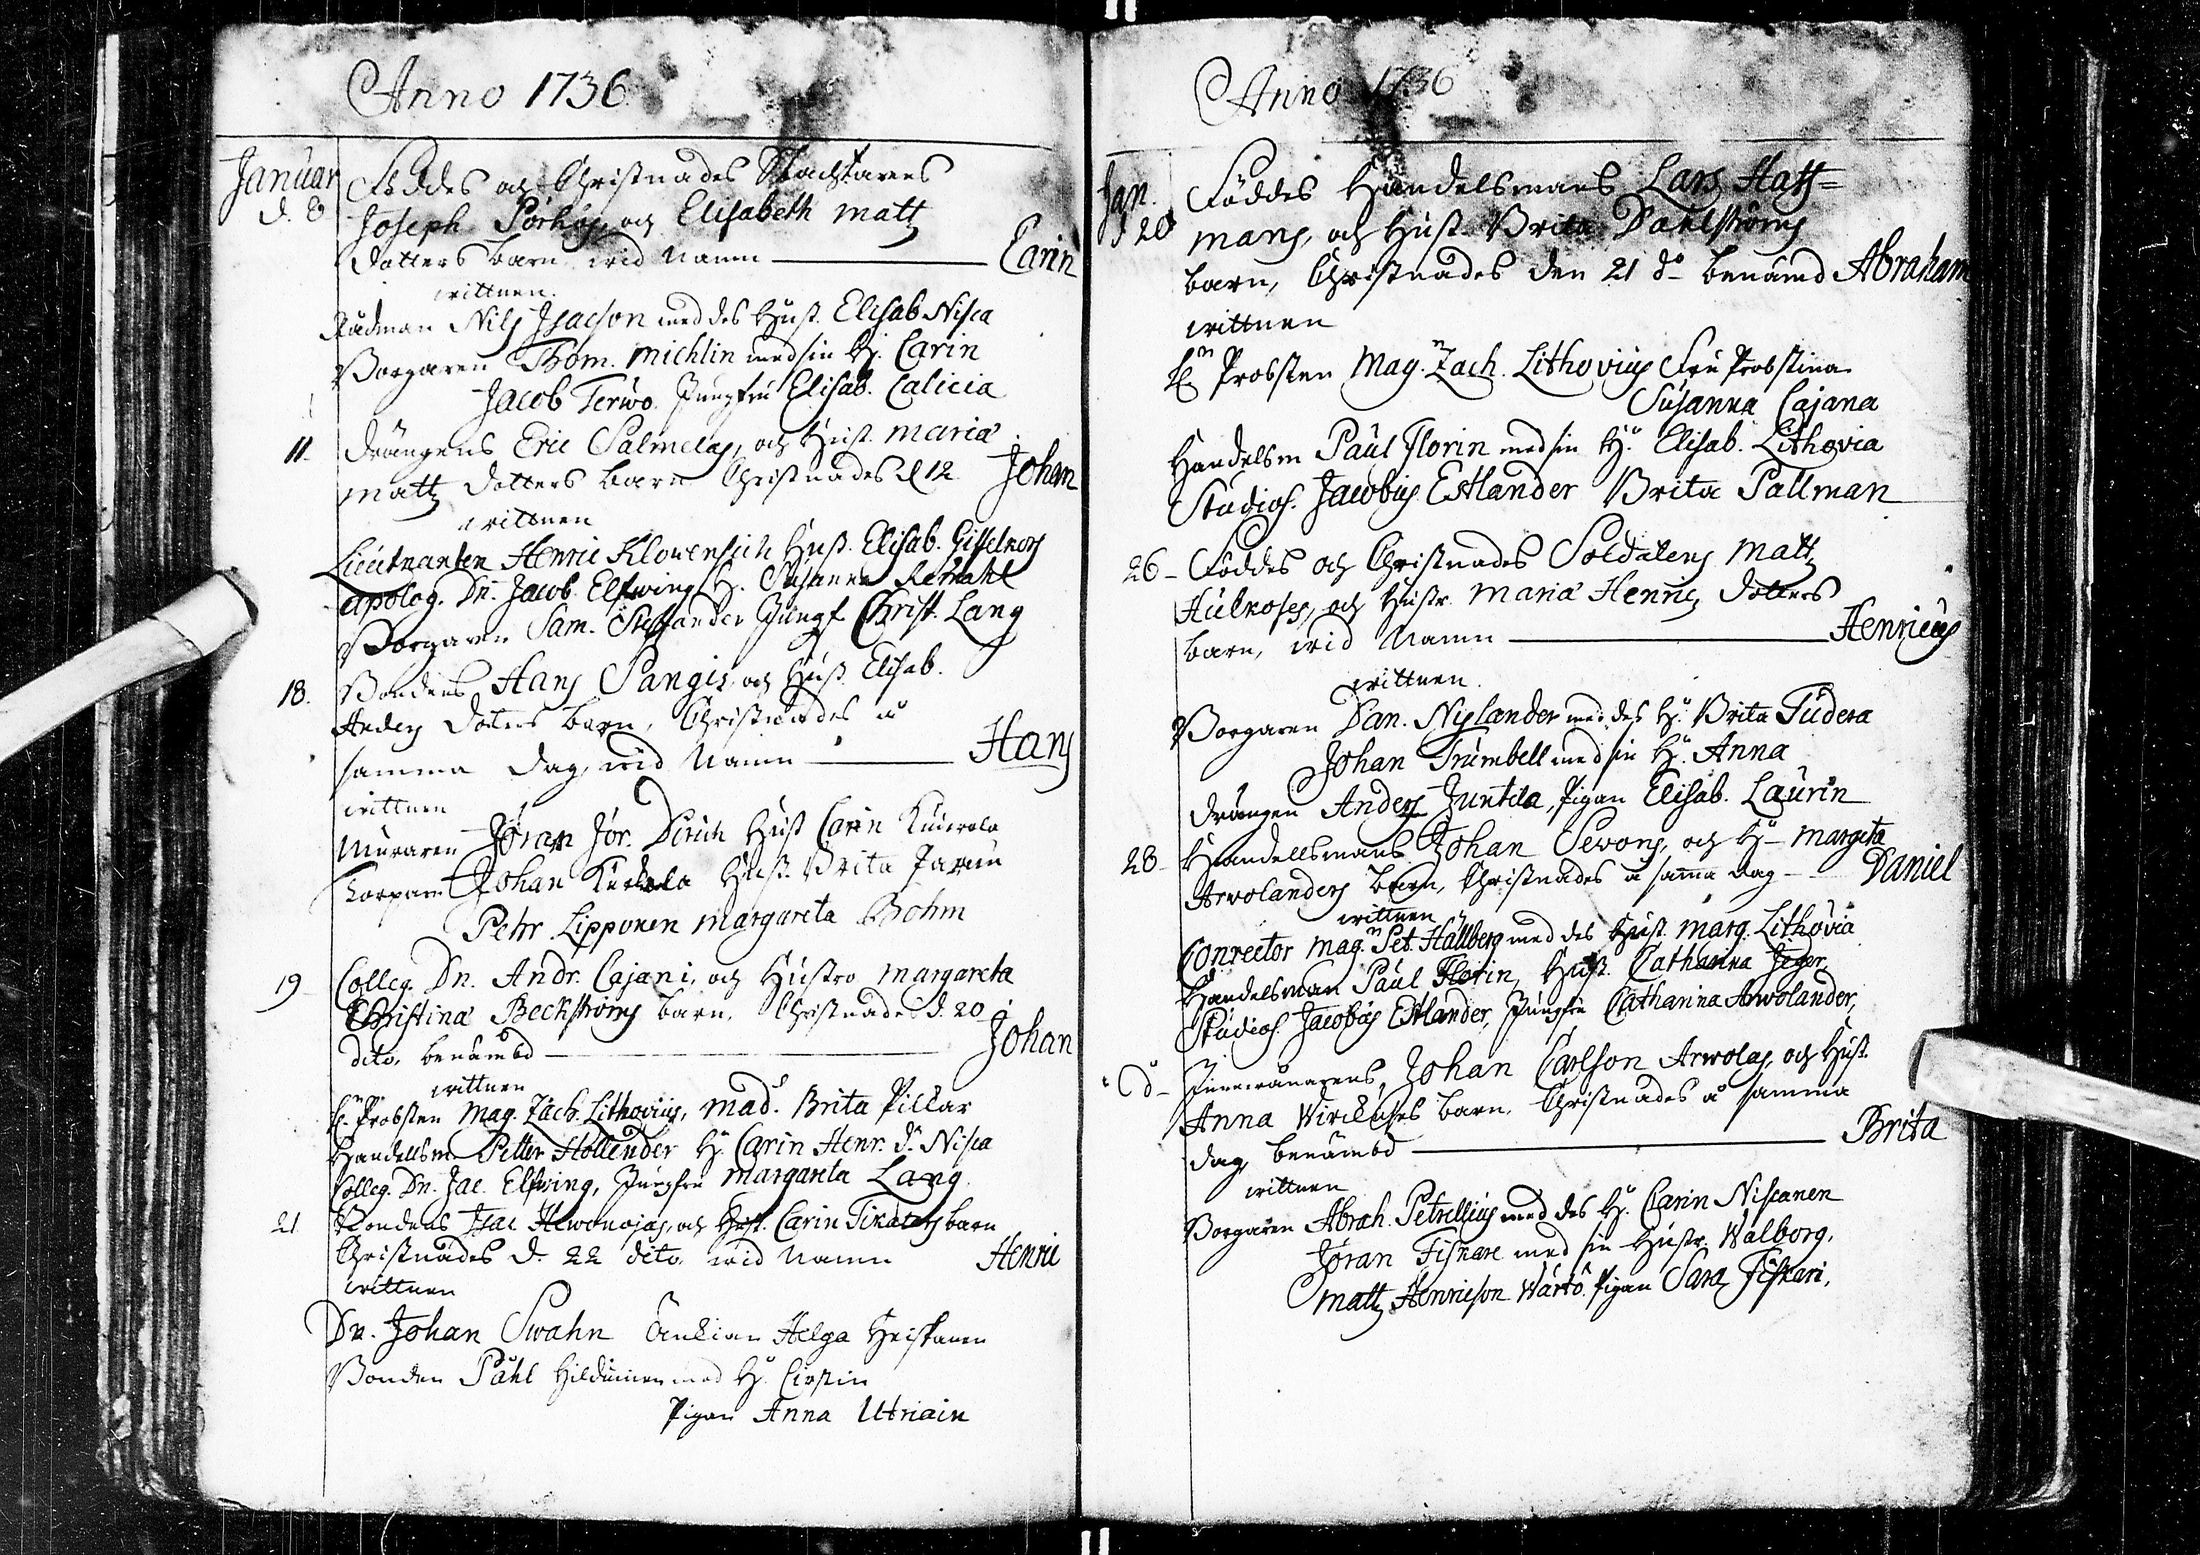 Anno 1736
Januar Föddes och Christnades Stadstarens
d. 8 Joseph Pörhös, och Elisabeth Matts
dotters barn wid Namn — Carin
wittnen
Rådman Nils Isacson med des Hust. Elisab Nisca
Borgaren Thom. Michlin med sin H. Carin
Jacob Terwo. Jungfru Elisab. Calicia
11 Drängens Eric Salmelas, och Hust. Maria
Matts dotters barn Christnades d 12 Johan
wittnen
Lieutnanten Henric Klowensich Hust. Elisab. Gisselkors
apolog. Dn. Jacob Elfwing H. Susanna
Borgaren Sam. Jungf Christ. Lang
18. Bondens Hans Pangis, och Hust. Elisab.
Anders doters barn, Christnades å
samma dag, wid Namn — Hans
wittnen
Muraren Jöran Jör. Hust Carin
Johan Hust. Brita
Petr Lipponen Margareta Bohm
19 Colleg. Dn. Andr. Cajani, och Hustro Margareta
Christina Beckströms barn. Christnades d. 20
dito, benämbd — Johan
wittnen
H. Probsten Mag. Zach. Lithovius, Mad. Brita Pillar
Handellsm Petter Hollender H. Carin Henr. d. Nisca
Colleg. Dn. Jac. Elfwing, Jungfru Margareta Lang
21 Bondens Isac Hewonojas, och Hust. Carin barn
Christnades d. 22 dito. wid Namn Henric
wittnen
Dn. Johan Swahn Änkian Helga Heiskanen
Bonden Påhl med H. Cirstin
Pigan Anna Utriain
Anno 1736
Jan. Föddes Handelsmans Lars Hatt=
d 20 mans, och Hust. Brita Dahlströms
barn, Christnades den 21 do benämd Abraham
wittnen
Hn Probsten Mag. Zach. Lithovius Fru Probstina
Susanna Cajana
Handelsm Paul Florin med sin H. Elisab. Lithovia
Studios. Jacobus Estlander Brita Pallman
26 - Föddes och Christnades Soldatens Matts
Hulkoses, och Hustr. Maria Henrics dotters
barn, wid Namn — Henricus
wittnen.
Borgaren Dan. Nylander med des H. Brita Tudera
Johan Trumbell med sin H. Anna
Drängen Anders Juntila, Pigan Elisab. Laurin
28 - Handellsmans Johan Sewons, och H. Margeta
Arwolanders barn, Christnades å sama dag - Daniel
wittnen
Conrector Mag. Pet. Hällberg med des Hust. Marg. Lithovia
Handelsman Paul Florin, Hust. Catharina Jeger,
Studios. Jacobus Estlander, Jungfru Catharina Arwolander,
d - Johan Carlson Arwolas, och Hust.
Anna barn. Christnades å samma
dag, benämbd — Brita
wittnen
Borgaren Abrah. Petrellius med des H. Carin Niscanen
Jöran Fiskare med sin Hustr. Walborg.
Matts Henricson Wärtö. Pigan Sara Fiskari.